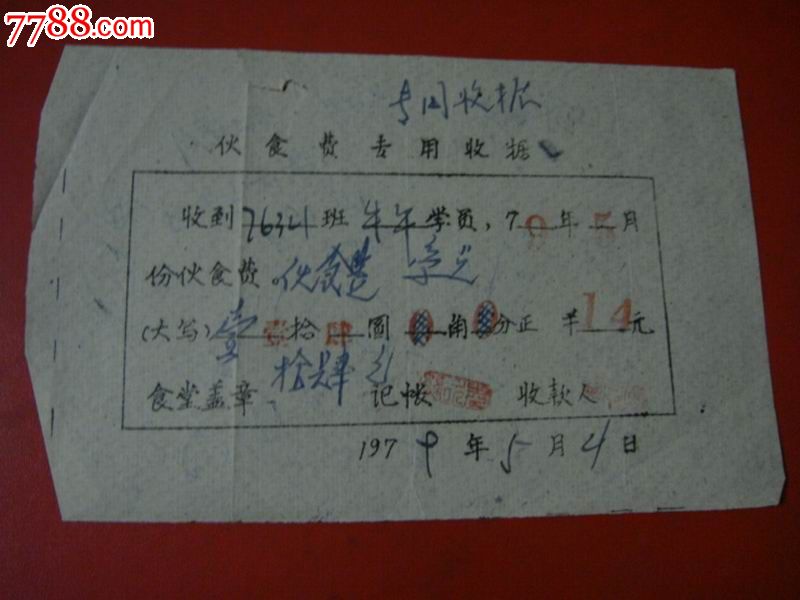 7788.com
专用收据
伙食费专用收据
收到7634班牛年学员,79年5月
份伙食费。伙食费
(大写)壹拾肆圆0角0分正 ¥14元
食堂盖章 拾肆元 记帐 收款人
1979年5月4日